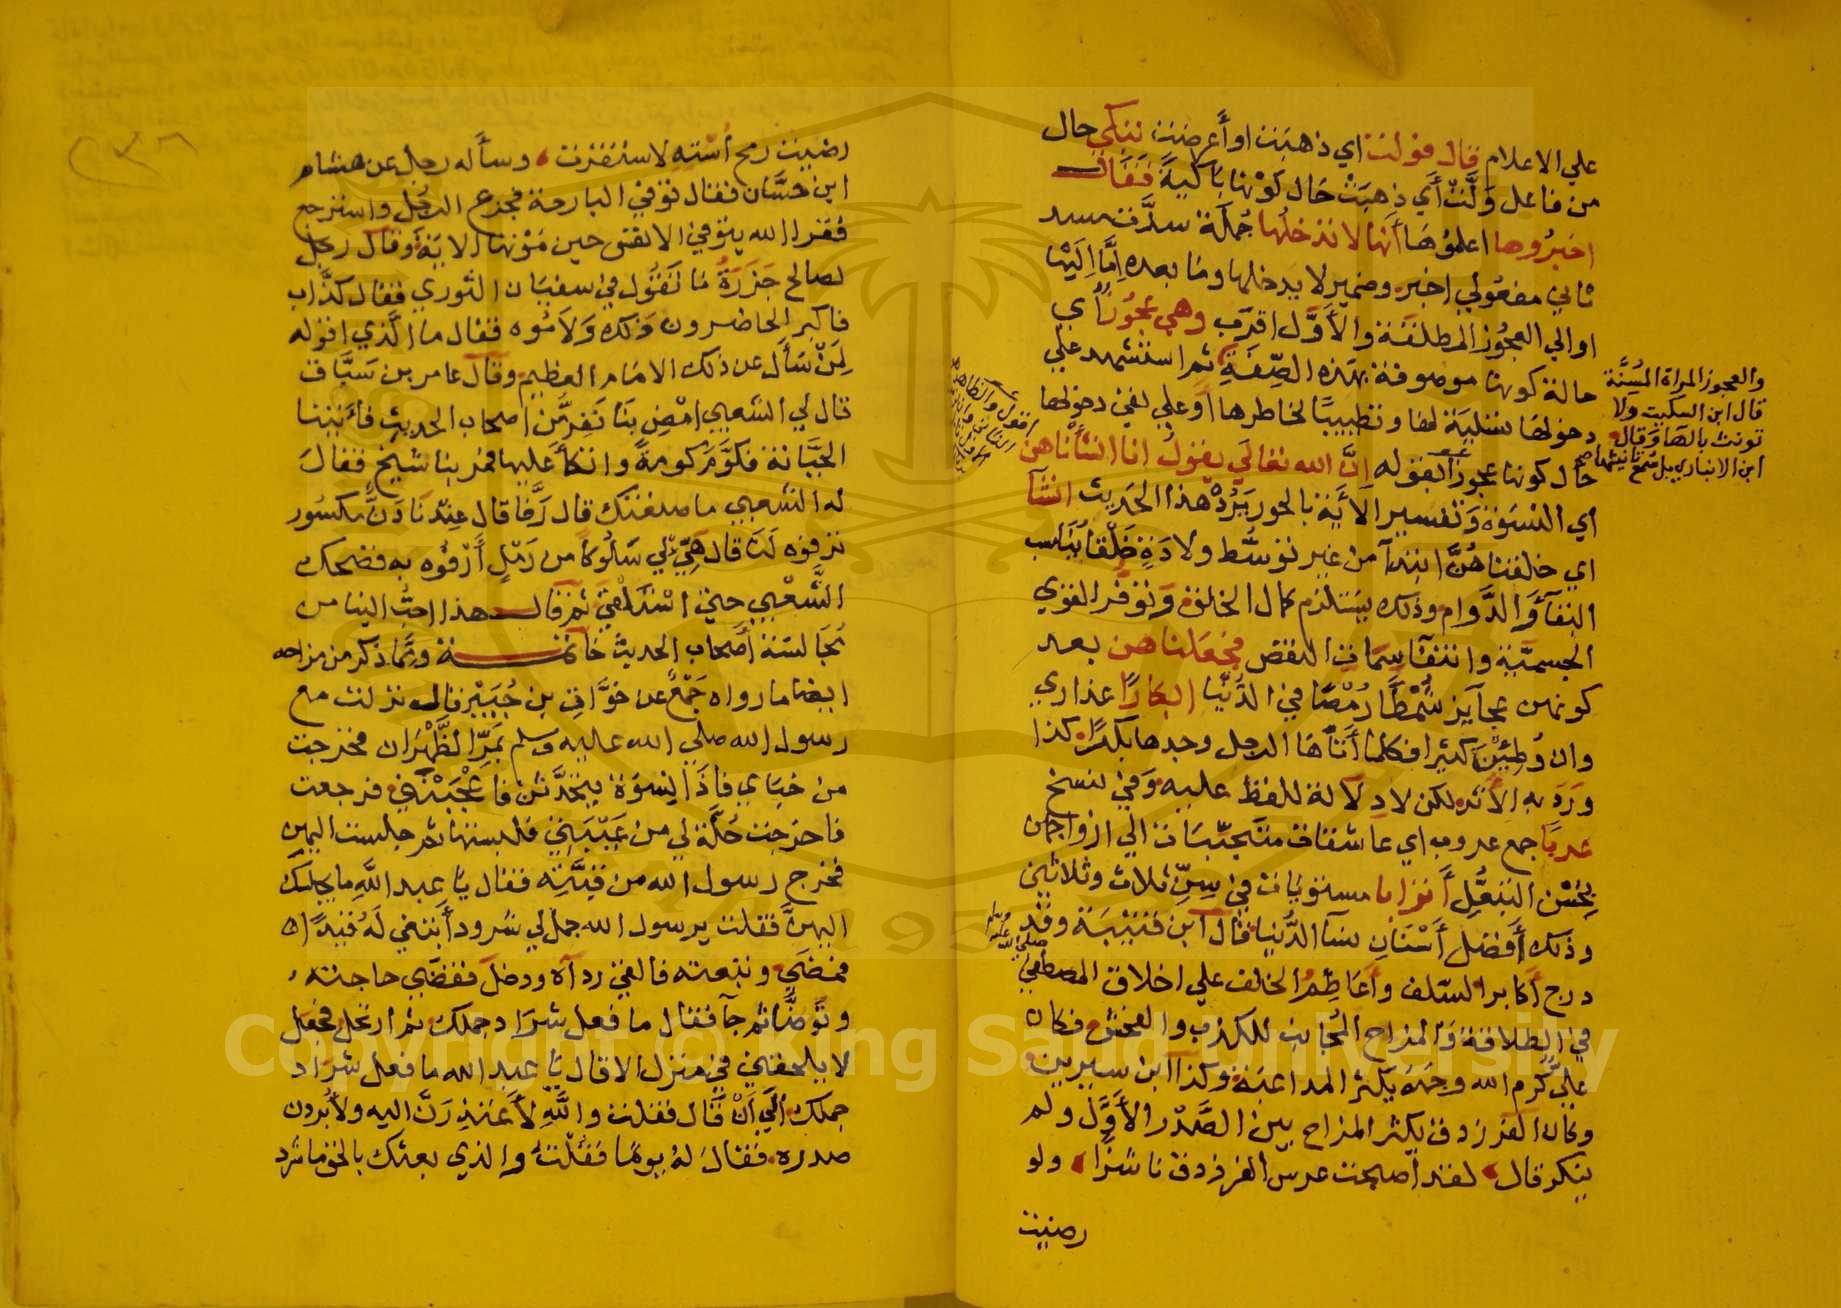 علي الاعلام قال فولت اي ذهبت او أعرضت تبكي حال
من فاعل وَلَّتْ أَي ذهبَتْ حَال كَوْنها بَاكيةً فَقَال
اخبرُوها اعلموُهَا أنها لا تدخلها جُملة سدَّت مسد
ثاني مفعُولي اخبر وضمير لا يدخلها وما بعده إِمَّا اليْها
او الي العجُوز المطلقة والأوَّل اقرب وهي عجُوز أي
حالة كونها موصوفة بهَذه الصِّفَةِ ثم استشهد علي
دخولها تسْليَة لها وتطييبًا لخاطرها أو علي نفي دخولها
حَال كونها عجوزاً بقوله إنَّ الله تعالَي يقولُ انا انشأناهن
اي النسْوَة وَتفسير الآيَة بالحور يَرُدُّ هذا الحَديث انشآ
اي خالقناهُنَّ ابتدآ من غير توسُّط ولادَةٍ خَلْقا يُنَاسب
البقآوَالدَّوام وذلك يستلزم كمال الخلق وتوفر القوي
الجسميَّة وانتفآ سِمَات النقص فجعلناهن بعد
كونهن عجايز شُمْطًا رُمْصًا في الدُّنْيا ابكارًا عذاري
وان وُطِيْنَ كثيرا فكلما أتَاهَا الرجل وجدها بكرًا كذا
وَرَدَ به الأثر لكن لا دلاَلة للفظ عليه وَفي نسخ
عربًا جمع عروب اي عاشقات متحبّبَات الي ازواجهن
بحُسْن التبعُّل أترابا مستويات في سِنّ ثلاث وثلاثين
وذلك أفضل أسْنَان نسآ الدُّنيا قال ابن قتيْبَة وقد
درج أكابر السّلف وأعاظمُ الخلف علي اخلاق المصطفي
صلي الله عليه وسلم
في الطلاقة وَالمزاح المُجانب للكذب والفحش فكان
عليٌّ كرم الله وجهَهُ يكثر المداعبَة وكذا ابن سيرين
وكان الفرزدق يكثر المزاح بين الصَّدْر الأوَّل ولم
ينكر قال لقد اصبحت عرس الفرزدق ناشزًا ولو
رضيت
والعجوز المراة المسُنَّة
قال ابن السكيت ولا
تونث بالهاء وقال
ابن الانباري بل سُمع تانيثها صح
رضيت رمح أسْتِهِ لاستقرت وسأَله رجل عن هشام
ابن حسَّان فقال توفي البارحة فجزع الرجُل واسترجع
فقرا الله يتوفي الانفس حين مَوْتها الايَة وقال رجل
لصالح جَزَرَةُ مَا تَقُول في سفيَان الثوري فقال كذَّاب
فاكبر الحاضرون ذلك وَلاَمُوه فقال ما الَّذي اقوله
لِمَنْ سَأَل عن ذلك الامَام العظيم وقال عامر بن سَيَّاف
قال لي الشعبي امْضِ بنَا نَفِرّ من اصحاب الحديث فاتينا
الجبَّانة فكَوَّمَ كومةً واتكأ عليها فمر بنا شيخ فقالَ
له الشعبي ما صنعتك قال رَفَّا قال عِنْدنَا دَنٌّ مكسُور
ترفوه لَنَا قال هَيِّ لي سَلُوكًا من رَمْلٍ أَرْفُوُه به فضحك
الشَّعْبي حتي اسْتَلْقَي ثم قال هذا احبُّ الينا من
مُجَالسَة أصحَاب الحديث خاتمة ومِمَّا ذكر من مزاحه
ايضا ما رواه جَمْعٌ عن خوَّات بن جُبَيْر قال نزلت مع
رسول الله صلي الله عليه وسلم بمَرّ الظَّهْرَان فخرجت
من خبَاي فاذَا نِسوَة يتحَدَّثن فاعْجَبْنَني فرجعت
فاخرجت حُلَّة لي من عَيْبَتي فلبستها ثم جلست اليهن
فخرج رسول الله من قبَّته فقال يَا عبد اللَّهِ ما يجلسك
اليهنَّ فقلت يرسول الله جمل لي شرود أبتغي لَهُ قيدًا
فمضَي وتبعته فالقي رداه ودخل فقضَي حاجته
وتَوضَّا ثم جآ فقال ما فعل شراد جملك ثم ارتحل فجعل
لا يلحقني في منزل الا قال يَا عبد الله ما فعل شرَاد
جملك الَي اَنْ قَال فقلت واللَّهِ لأَعتذرَنَّ اليه ولأُبردن
صدره فقالَ لهُ يومًا فقلتُ والذي بعثك بالحق ما شرد
Copyright © King Saud University
1957